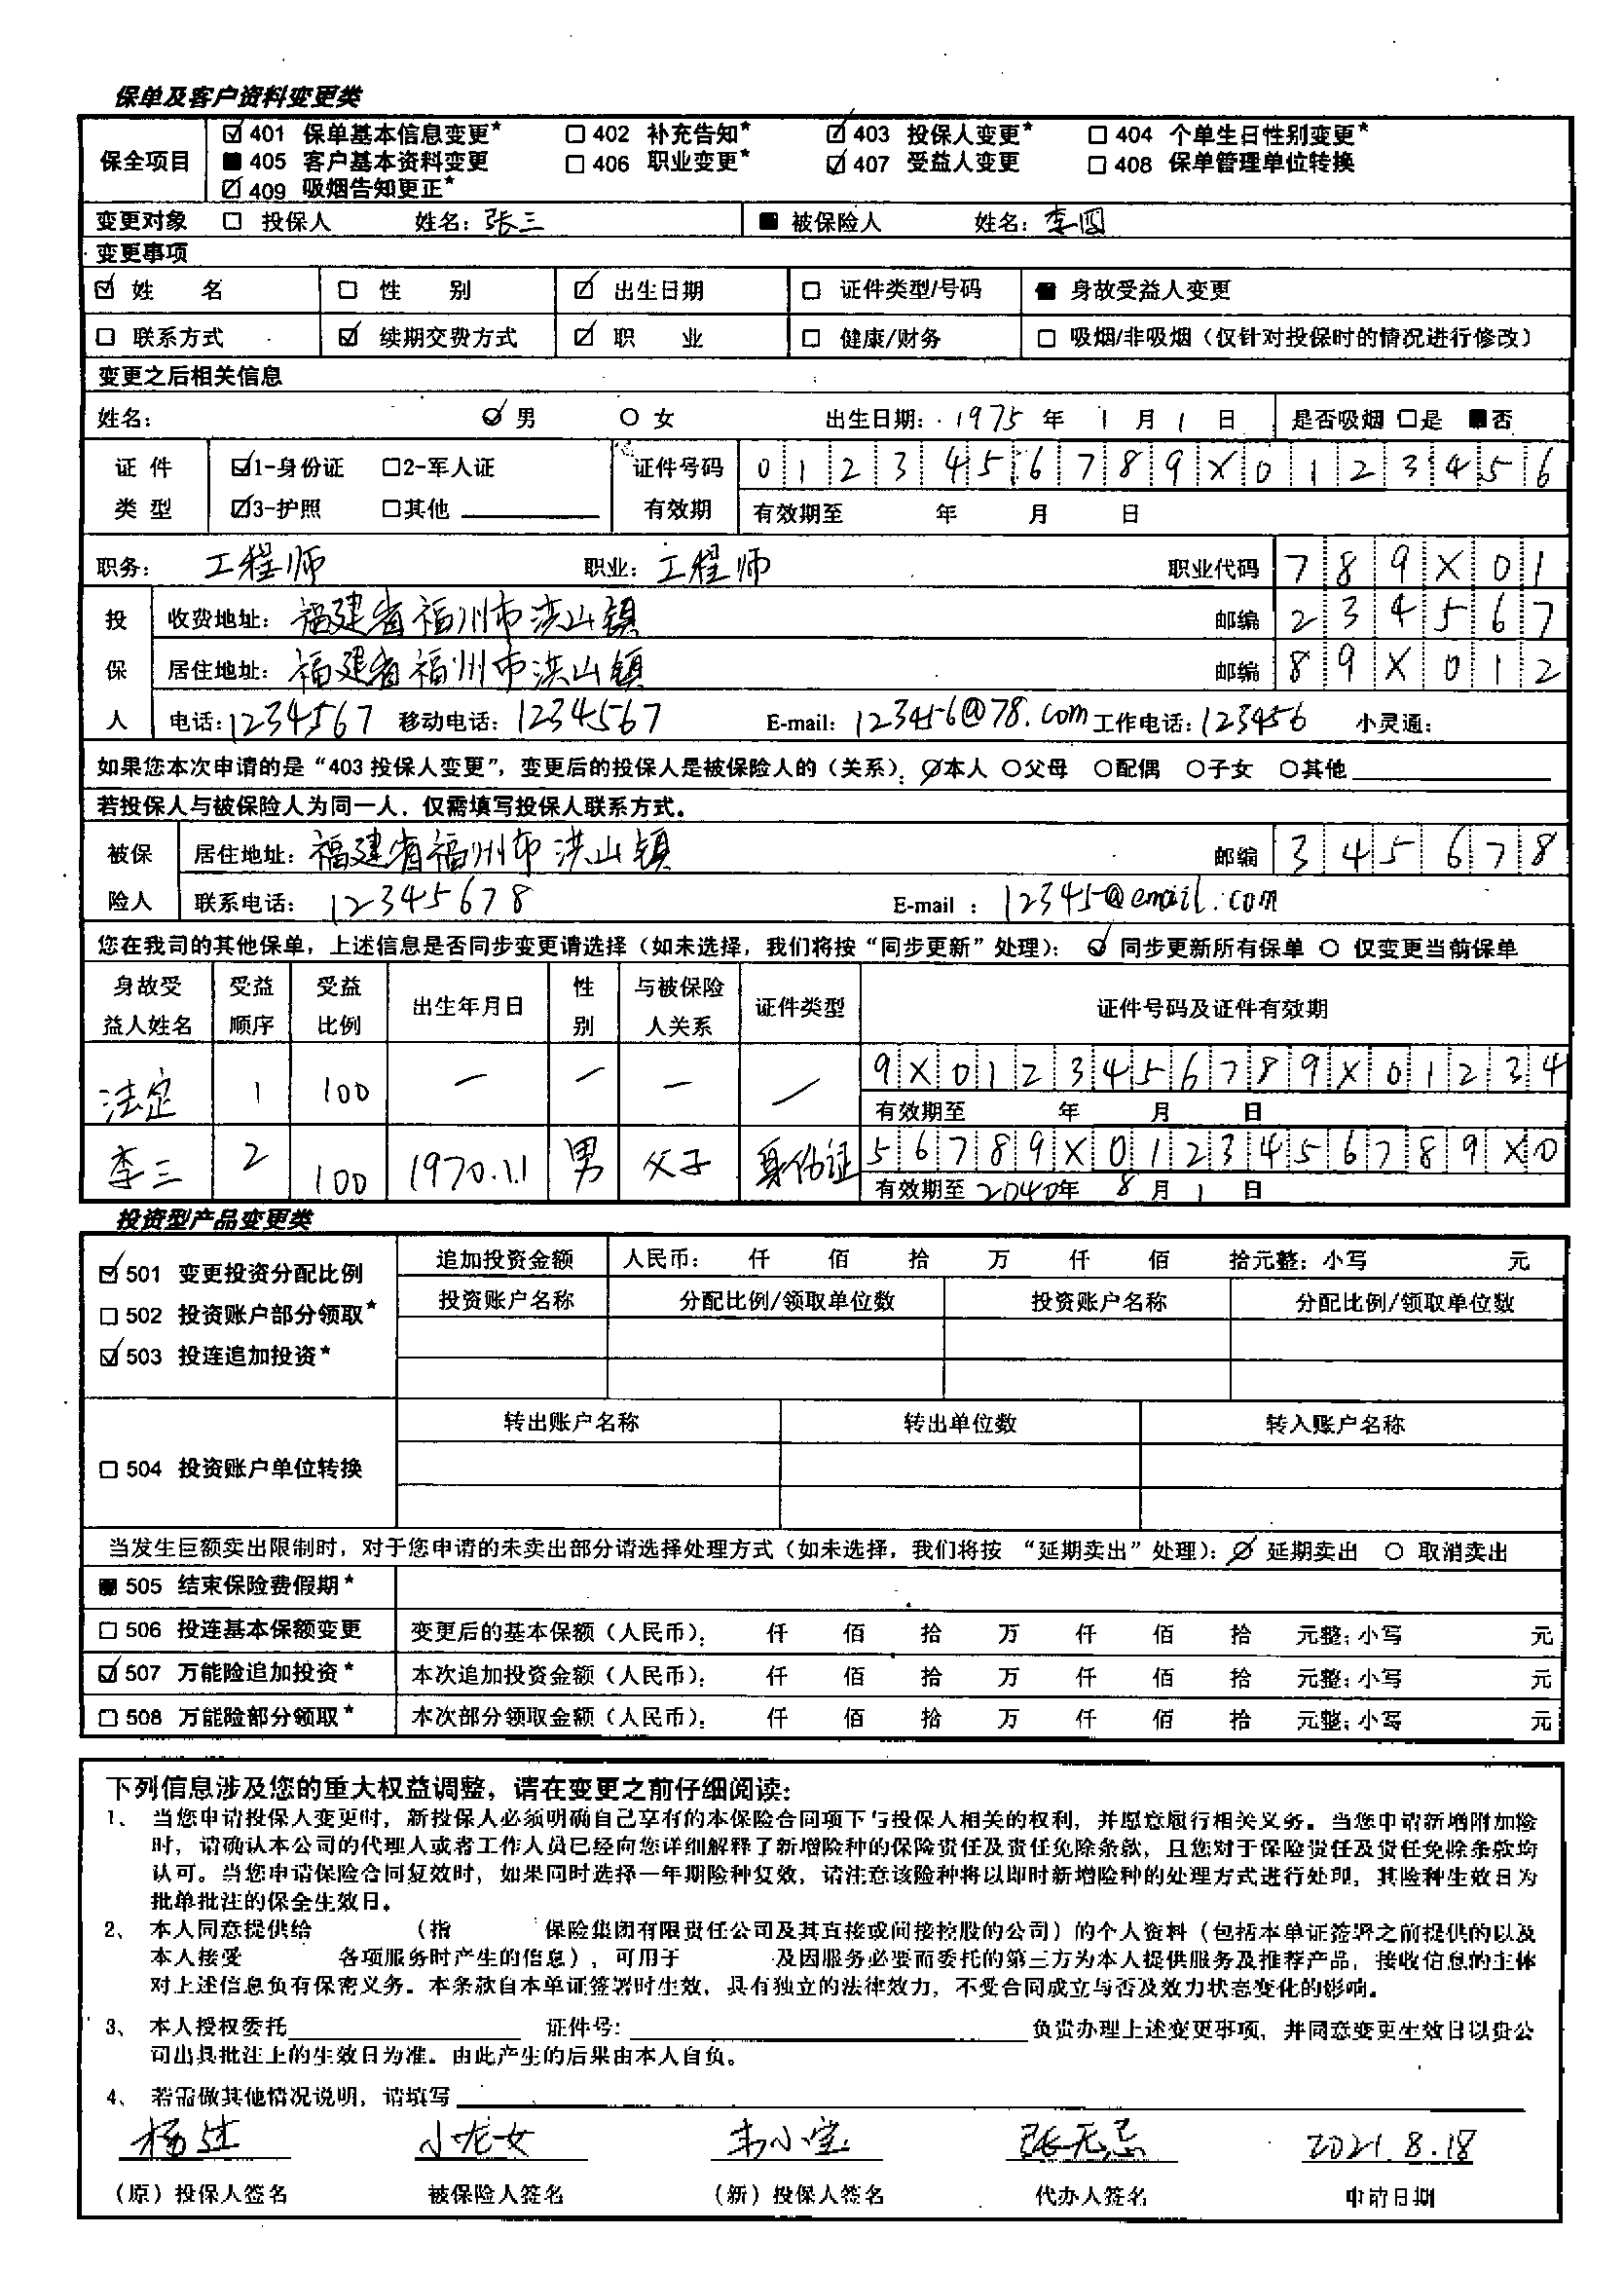 保单及客户资料变更类
保全项目
☑ 401 保单基本信息变更* ☐ 402 补充告知* ☑ 403 投保人变更* ☐ 404 个单生日性别变更*
■ 405 客户基本资料变更 ☐ 406 职业变更* ☑ 407 受益人变更 ☐ 408 保单管理单位转换
☑ 409 吸烟告知更正*
变更对象 ☐ 投保人 姓名：张三 ■ 被保险人 姓名：李四
变更事项
☑ 姓 名 ☐ 性 别 ☑ 出生日期 ☐ 证件类型/号码 ■ 身故受益人变更
☐ 联系方式 ☑ 续期交费方式 ☑ 职 业 ☐ 健康/财务 ☐ 吸烟/非吸烟（仅针对投保时的情况进行修改）
变更之后相关信息
姓名： ☑ 男 ○ 女 出生日期：1975 年 1 月 1 日 是否吸烟 ☐是 ■否
证 件 ☑1-身份证 ☐2-军人证 证件号码 0123456789X0123456
类 型 ☑3-护照 ☐其他 有效期 有效期至 年 月 日
职务：工程师 职业：工程师 职业代码 789X01
投 收费地址：福建省福州市洪山镇 邮编 234567
保 居住地址：福建省福州市洪山镇 邮编 89X012
人 电话：1234567 移动电话：1234567 E-mail：123456@78.com 工作电话：123456 小灵通：
如果您本次申请的是“403 投保人变更”，变更后的投保人是被保险人的（关系）：☑本人 ○父母 ○配偶 ○子女 ○其他
若投保人与被保险人为同一人，仅需填写投保人联系方式。
被保 居住地址：福建省福州市洪山镇 邮编 345678
险人 联系电话：12345678 E-mail ：12345@email.com
您在我司的其他保单，上述信息是否同步变更请选择（如未选择，我们将按“同步更新”处理）：☑ 同步更新所有保单 ○ 仅变更当前保单
身故受 受益 受益 出生年月日 性 与被保险 证件类型 证件号码及证件有效期
益人姓名 顺序 比例 别 人关系
法定 1 100 — — — — 9X0123456789X01234
有效期至 年 月 日
李三 2 100 1970.1.1 男 父子 身份证 56789X0123456789X0
有效期至 2040年 8 月 1 日
投资型产品变更类
☑ 501 变更投资分配比例 追加投资金额 人民币： 仟 佰 拾 万 仟 佰 拾元整；小写 元
☐ 502 投资账户部分领取* 投资账户名称 分配比例/领取单位数 投资账户名称 分配比例/领取单位数
☑ 503 投连追加投资*
转出账户名称 转出单位数 转入账户名称
☐ 504 投资账户单位转换
当发生巨额卖出限制时，对于您申请的未卖出部分请选择处理方式（如未选择，我们将按 “延期卖出”处理）：☑ 延期卖出 ○ 取消卖出
■ 505 结束保险费假期*
☐ 506 投连基本保额变更 变更后的基本保额（人民币）： 仟 佰 拾 万 仟 佰 拾 元整；小写 元
☑ 507 万能险追加投资* 本次追加投资金额（人民币）： 仟 佰 拾 万 仟 佰 拾 元整；小写 元
☐ 508 万能险部分领取* 本次部分领取金额（人民币）： 仟 佰 拾 万 仟 佰 拾 元整；小写 元
下列信息涉及您的重大权益调整，请在变更之前仔细阅读：
1、 当您申请投保人变更时，新投保人必须明确自己享有的本保险合同项下与投保人相关的权利，并愿意履行相关义务。当您申请新增附加险
时，请确认本公司的代理人或者工作人员已经向您详细解释了新增险种的保险责任及责任免除条款，且您对于保险责任及责任免除条款均
认可。当您申请保险合同复效时，如果同时选择一年期险种复效，请注意该险种将以即时新增险种的处理方式进行处理，其险种生效日为
批单批注的保全生效日。
2、 本人同意提供给 （指 保险集团有限责任公司及其直接或间接控股的公司）的个人资料（包括本单证签署之前提供的以及
本人接受 各项服务时产生的信息），可用于 及因服务必要而委托的第三方为本人提供服务及推荐产品，接收信息的主体
对上述信息负有保密义务。本条款自本单证签署时生效，具有独立的法律效力，不受合同成立与否及效力状态变化的影响。
3、 本人授权委托 证件号： 负责办理上述变更事项，并同意变更生效日以贵公
司出具批注上的生效日为准。由此产生的后果由本人自负。
4、 若需做其他情况说明，请填写
杨过 小龙女 韦小宝 张无忌 2021.8.18
（原）投保人签名 被保险人签名 （新）投保人签名 代办人签名 申请日期